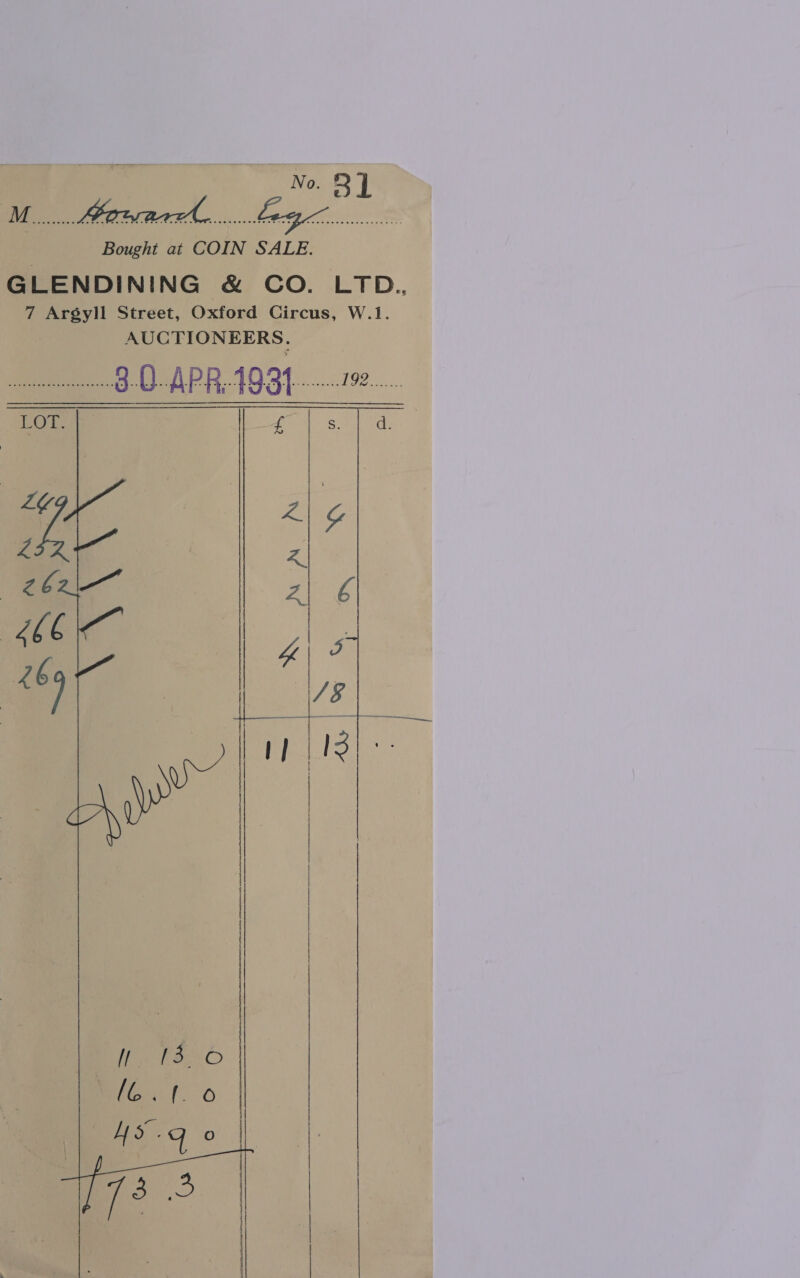 No. 31
M Howard Esq
Bought at COIN SALE.
GLENDINING & CO. LTD.,
7 Argyll Street, Oxford Circus, W.1.
AUCTIONEERS.
30 APR. 1931 192
LOT. £ s. d.
249 2 4
252 2
262 2 6
266 4 5
269 18
11 13 - -
11 13 0
16 . 1 . 0
45 . 9 0
£73 . 3